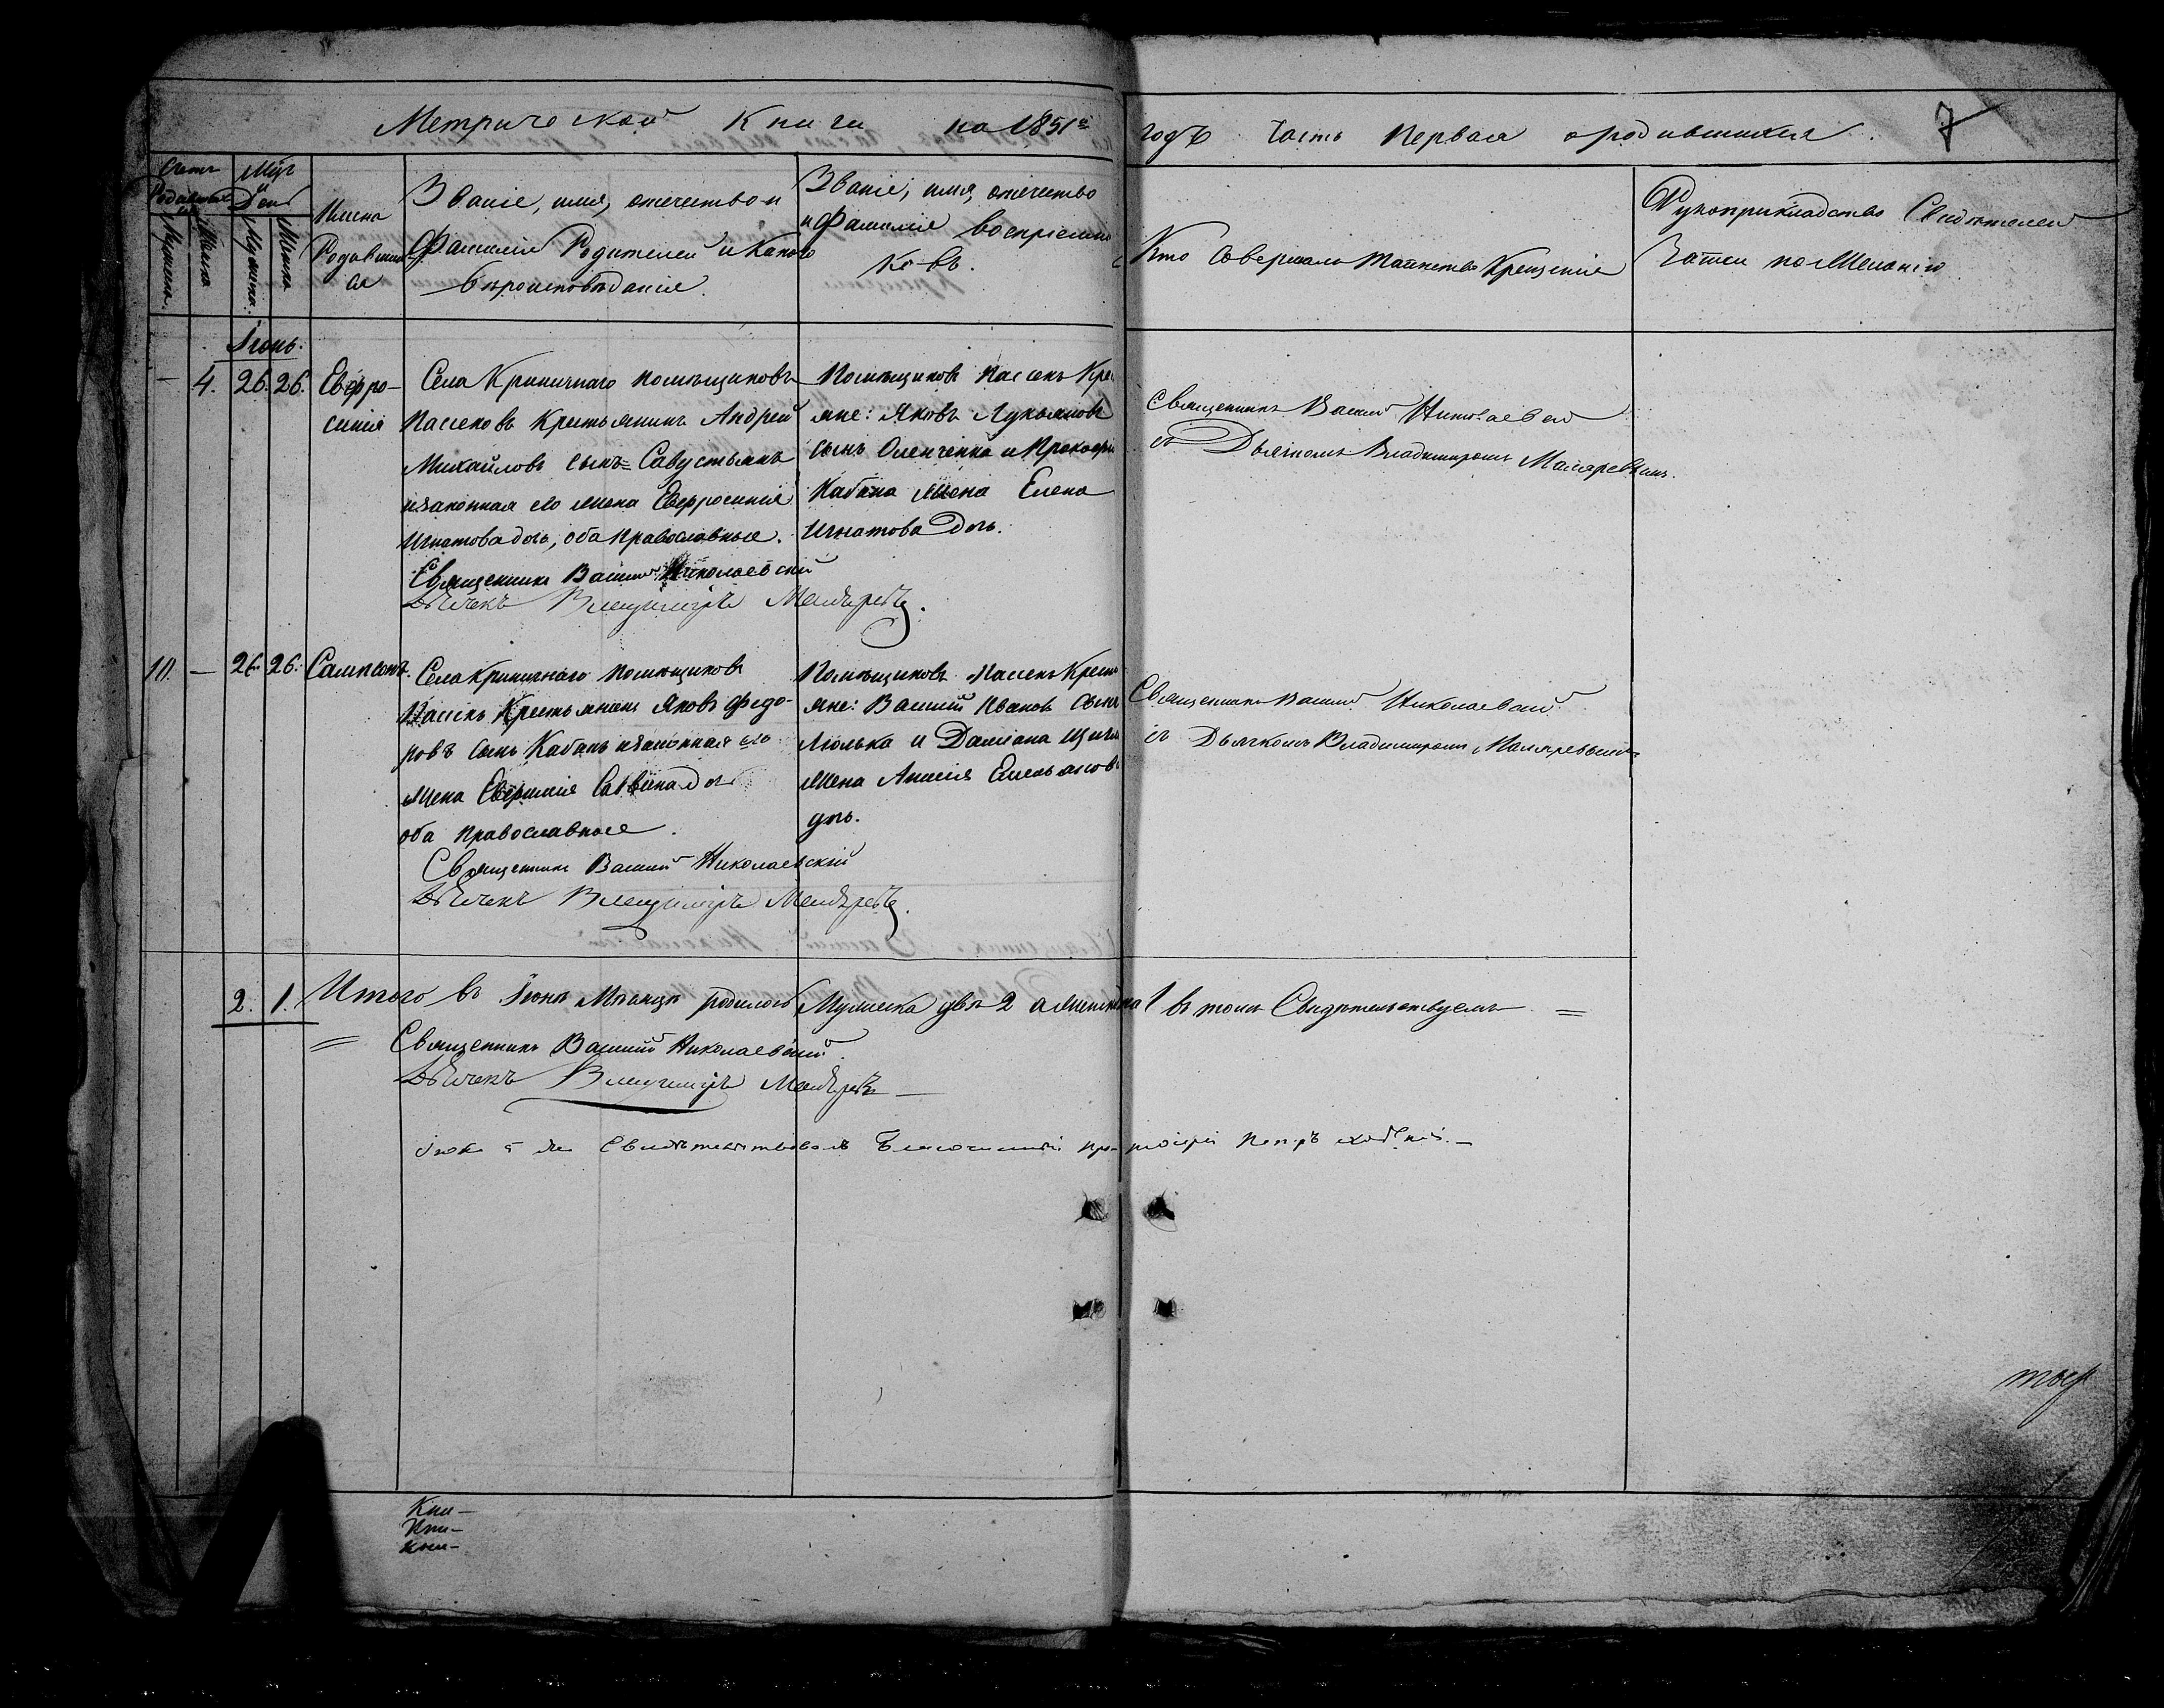 Метрической Книги на 1851й годъ Часть Первая о родившихся.
7
Счетъ Родившихся
Мужеска.
Женска
Мцъ и День
Имена Родившихся
Званіе, имя, отечество и
Фамилія Родителей и Какого
вѣроисповѣданія.
Званіе, имя, отечество
и Фамилія воспріемни
ковъ.
Кто Совершалъ Таинство Крещенія
Рукоприкладство Свидѣтелей
записи по Желанію
Іюнь.
— 4. 26. 26. Евфро-
синія
Села Криничнаго помѣщиковъ
Пассековъ Крестьянинъ Андрей
Михайловъ сынъ Савустьянъ
и законная его жена Евфросинія
Игнатова дочь, оба православные.
Священникъ Василій Николаевскій
Дьячекъ Владимиръ
Помѣщиковъ Пассекъ Кре
яне: Яковъ Лукьяновъ
сынъ Оленченко и Прокофія
Кабана жена Елена
Игнатова дочь.
Священникъ Василій Николаевскій
съ Дьячкомъ Владимиромъ Маляревымъ.
10. — 26. 26. Сампсонъ.
Села Криничнаго помѣщиковъ
Пассекъ Крестьянинъ Яковъ Федо-
ровъ сынъ Кабанъ и законная его
жена Евфимія Саввина дочь
оба православные.
Священникъ Василій Николаевскій
Дьячекъ Владимиръ
Помѣщиковъ Пассекъ Крест
яне: Василій Ивановъ сынъ
Люлька и Даміана
жена Анисія Емельянов
дчь.
Священникъ Василій Николаевскій
съ Дьячкомъ Владимиромъ
2. 1. Итого въ Іюнѣ Мѣсяцѣ родилось Мужеска двѣ 2 а женска 1 въ томъ Свидѣтельствуемъ
Священникъ Василій Николаевскій.
Дьячекъ Владимиръ
Свидѣтельствовалъ Благочинный протоіерей Петръ
Кни-
Кни-
Кни-